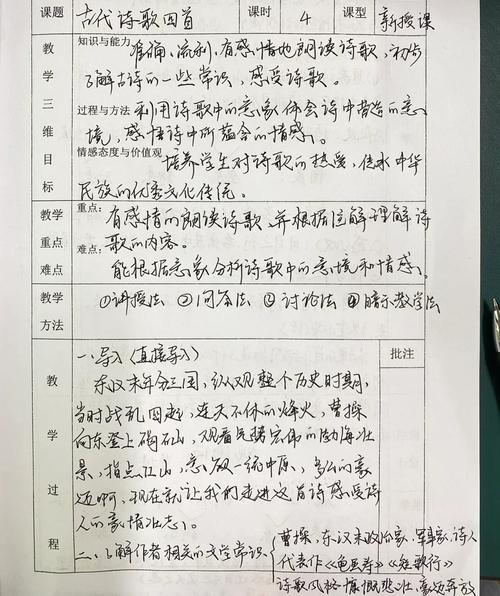 课题 古代诗歌四首 课时 4 课型 新授课
教学三维目标
知识与能力 准确、流利、有感情地朗读诗歌,初步
了解古诗的一些常识,感受诗歌。
过程与方法 利用诗歌中的意象体会诗中营造的意
境,感悟诗中所蕴含的情感。
情感态度与价值观 培养学生对诗歌的热爱,传承中华
民族的优秀文化传统。
教学重点难点
重点: 有感情的朗读诗歌,并根据注解理解诗
歌的内容。
难点: 能根据意象分析诗歌中的意境和情感。
教学方法 ①讲授法 ②问答法 ③讨论法 ④暗示教学法
教学过程
批注
一、导入(直接导入)
东汉末年分三国,纵观整个历史时期,
当时战乱四起,连天不休的烽火,曹操
向东登上碣石山,观看
宏伟的渤海壮
景,指点江山,意
一统中原,多么的豪
迈啊,现在就让我们走进这首诗感受诗
人的豪情壮志。
二、了解作者相关的文学常识
曹操,东汉末政治家、军事家、诗人
代表作《龟虽寿》《短歌行》
诗歌风格慷慨悲壮、豪迈奔放